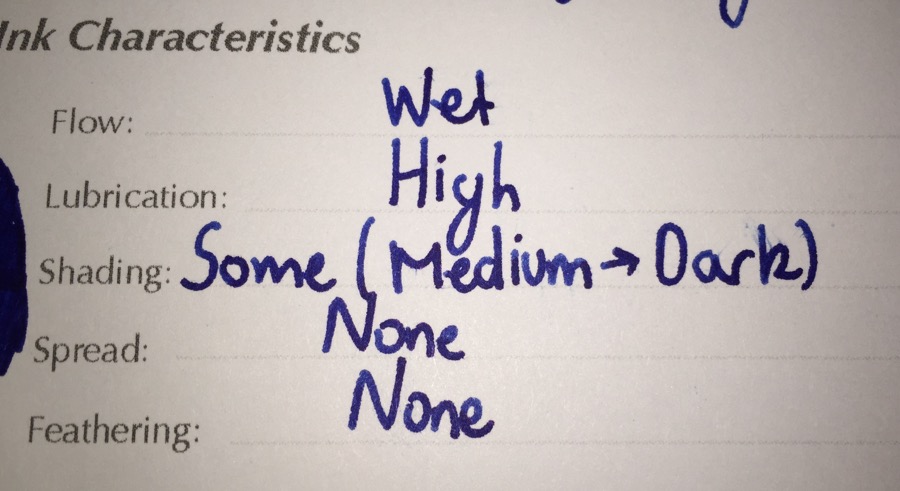 Ink Characteristics
Flow: Wet
Lubrication: High
Shading: Some (Medium → Dark)
Spread: None
Feathering: None